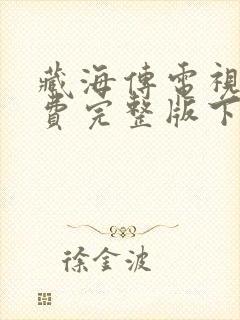 藏海傳電視
費完整版下
徐金波